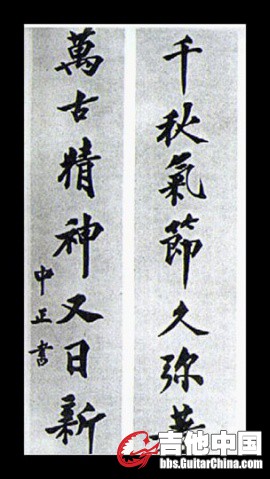 千秋氣節久弥著
萬古精神又日新
中正書
吉他中国
bbs.GuitarChina.com